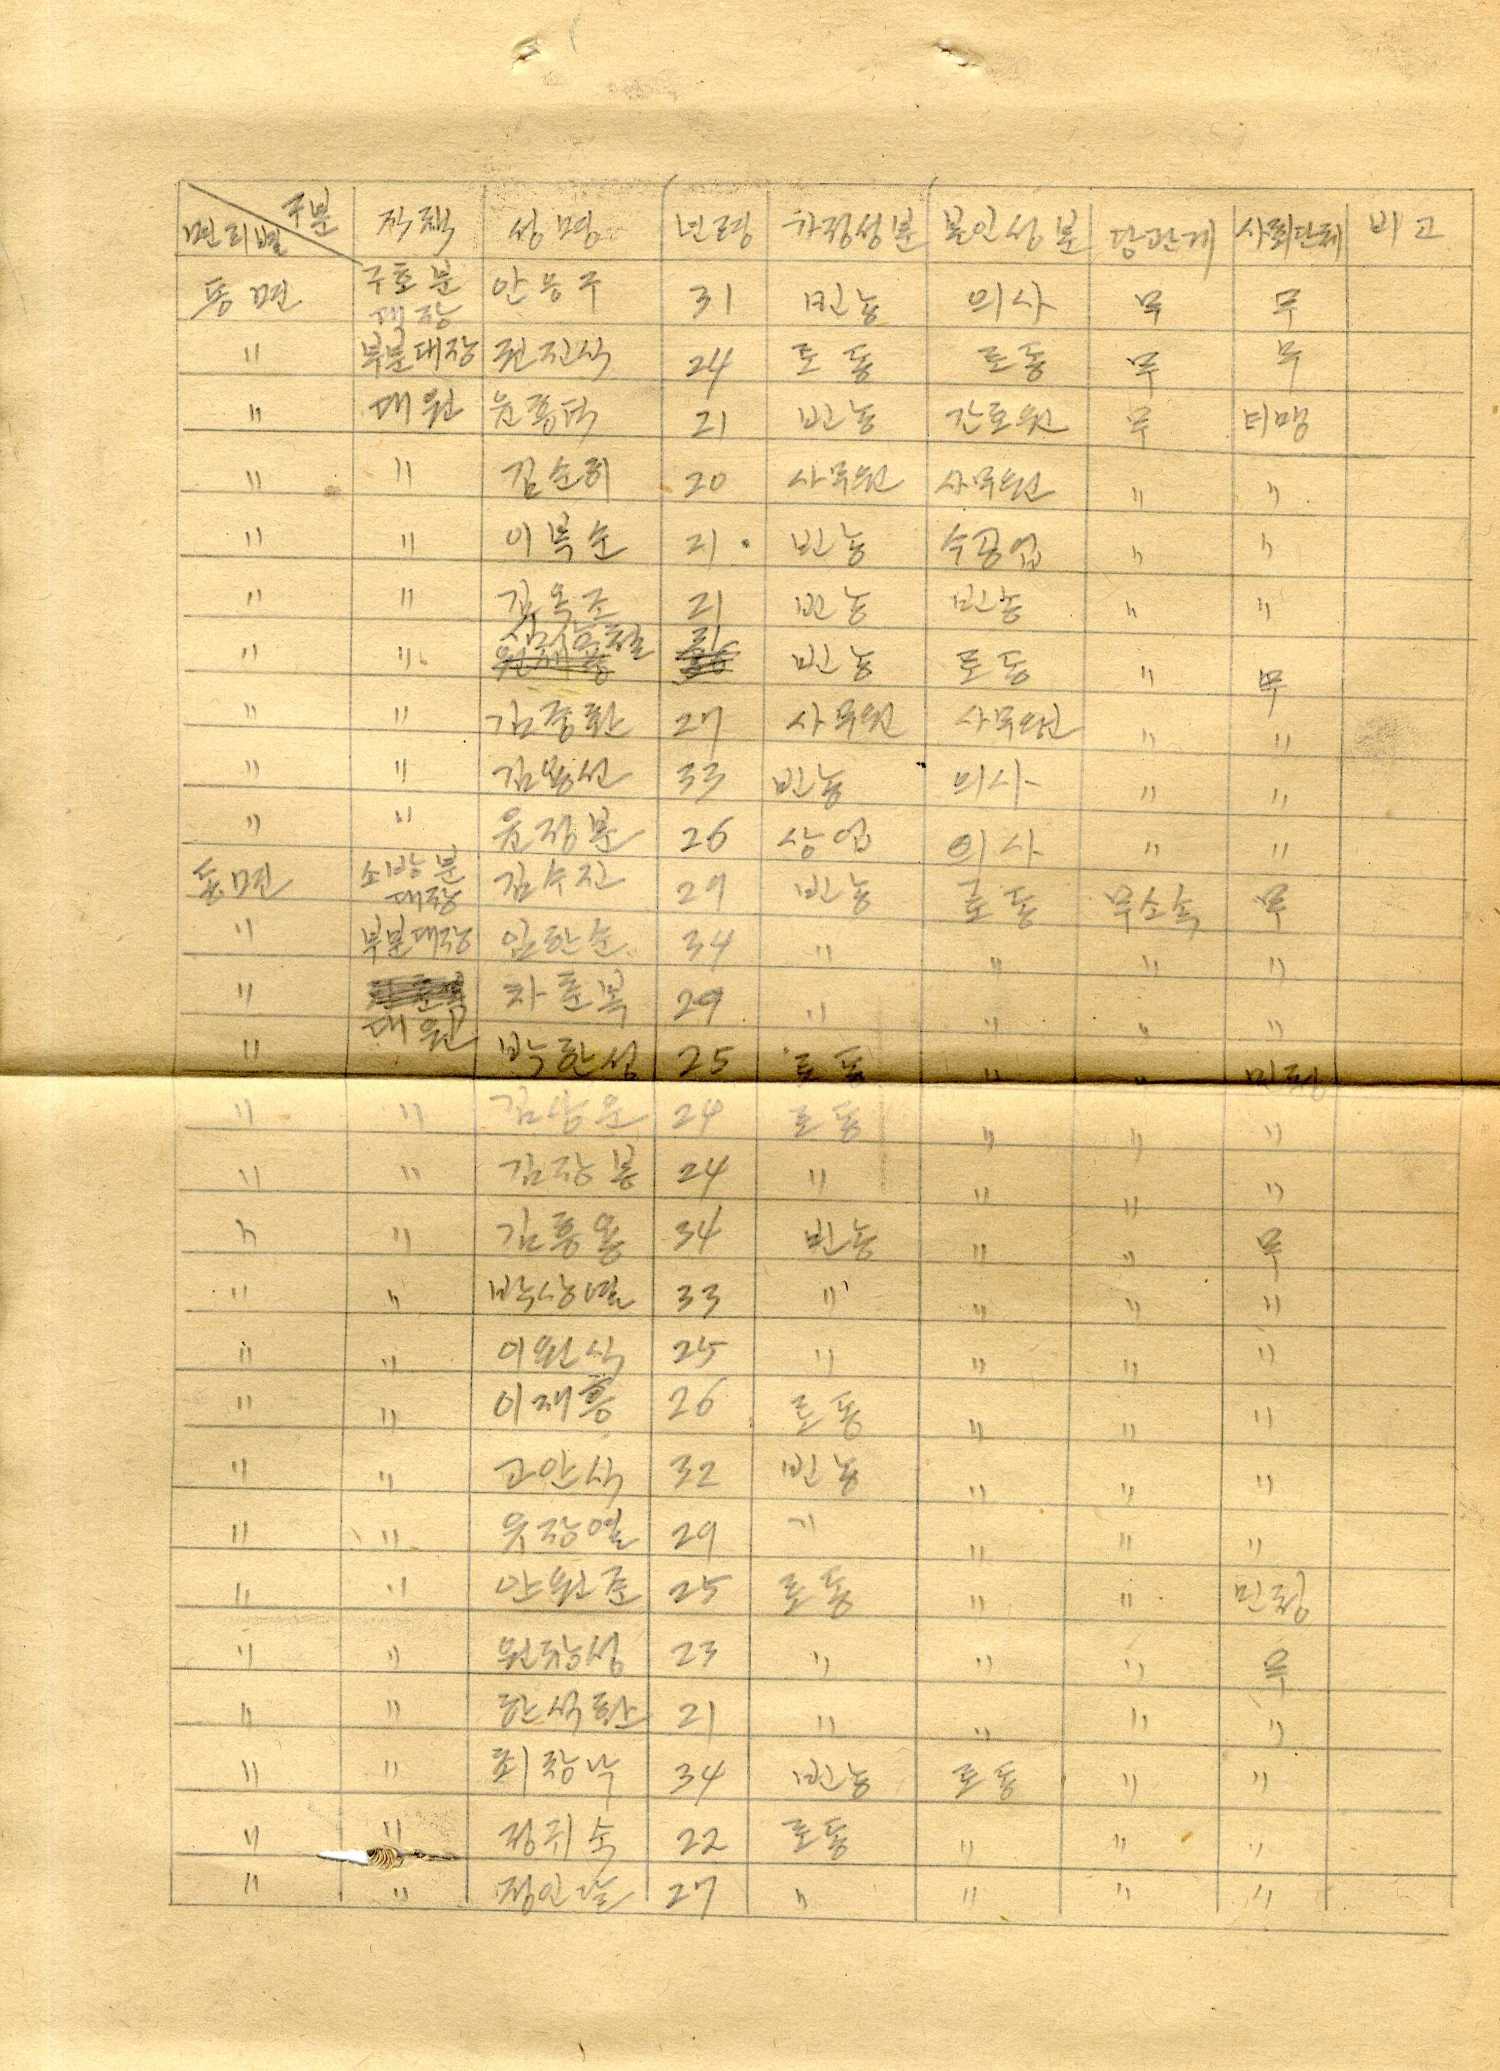 구분 면리별 직책 성명 년령 가정성분 본인성분 당관계 사회단체 비고
동면 구호분대장 안응주 31 빈농 의사 무 무
〃 부분대장 권진식 24 로동 로동 무 무
〃 대원 21 빈농 간호원 무 녀맹
〃 〃 김순희 20 사무원 사무원 〃 〃
〃 〃 이복순 21 빈농 수공업 〃 〃
〃 〃 김옥조 21 빈농 빈농 〃 〃
〃 〃 빈농 로동 〃 무
〃 〃 김중환 27 사무원 사무원 〃 〃
〃 〃 김용선 33 빈농 의사 〃 〃
〃 〃 윤정분 26 상업 의사 〃 〃
동면 소방분대장 김수진 29 빈농 로동 무소속 무
〃 부분대장 임한순 34 〃 〃 〃 〃
〃 대원 차춘복 29 〃 〃 〃 〃
〃 박한성 25 로동 〃 〃 민청
〃 〃 김상운 24 로동 〃 〃 〃
〃 〃 김장봉 24 〃 〃 〃 〃
〃 〃 김흥용 34 빈농 〃 〃 무
〃 〃 박상열 33 〃 〃 〃 〃
〃 〃 이원식 25 〃 〃 〃 〃
〃 〃 이재흥 26 로동 〃 〃 〃
〃 〃 고안식 32 빈농 〃 〃 〃
〃 〃 29 〃 〃 〃 〃
〃 〃 안원준 25 로동 〃 〃 민청
〃 〃 원창성 23 〃 〃 〃 무
〃 〃 한석환 21 〃 〃 〃 〃
〃 〃 최창낙 34 빈농 로동 〃 〃
〃 〃 정귀숙 22 로동 〃 〃 〃
〃 〃 27 〃 〃 〃 〃